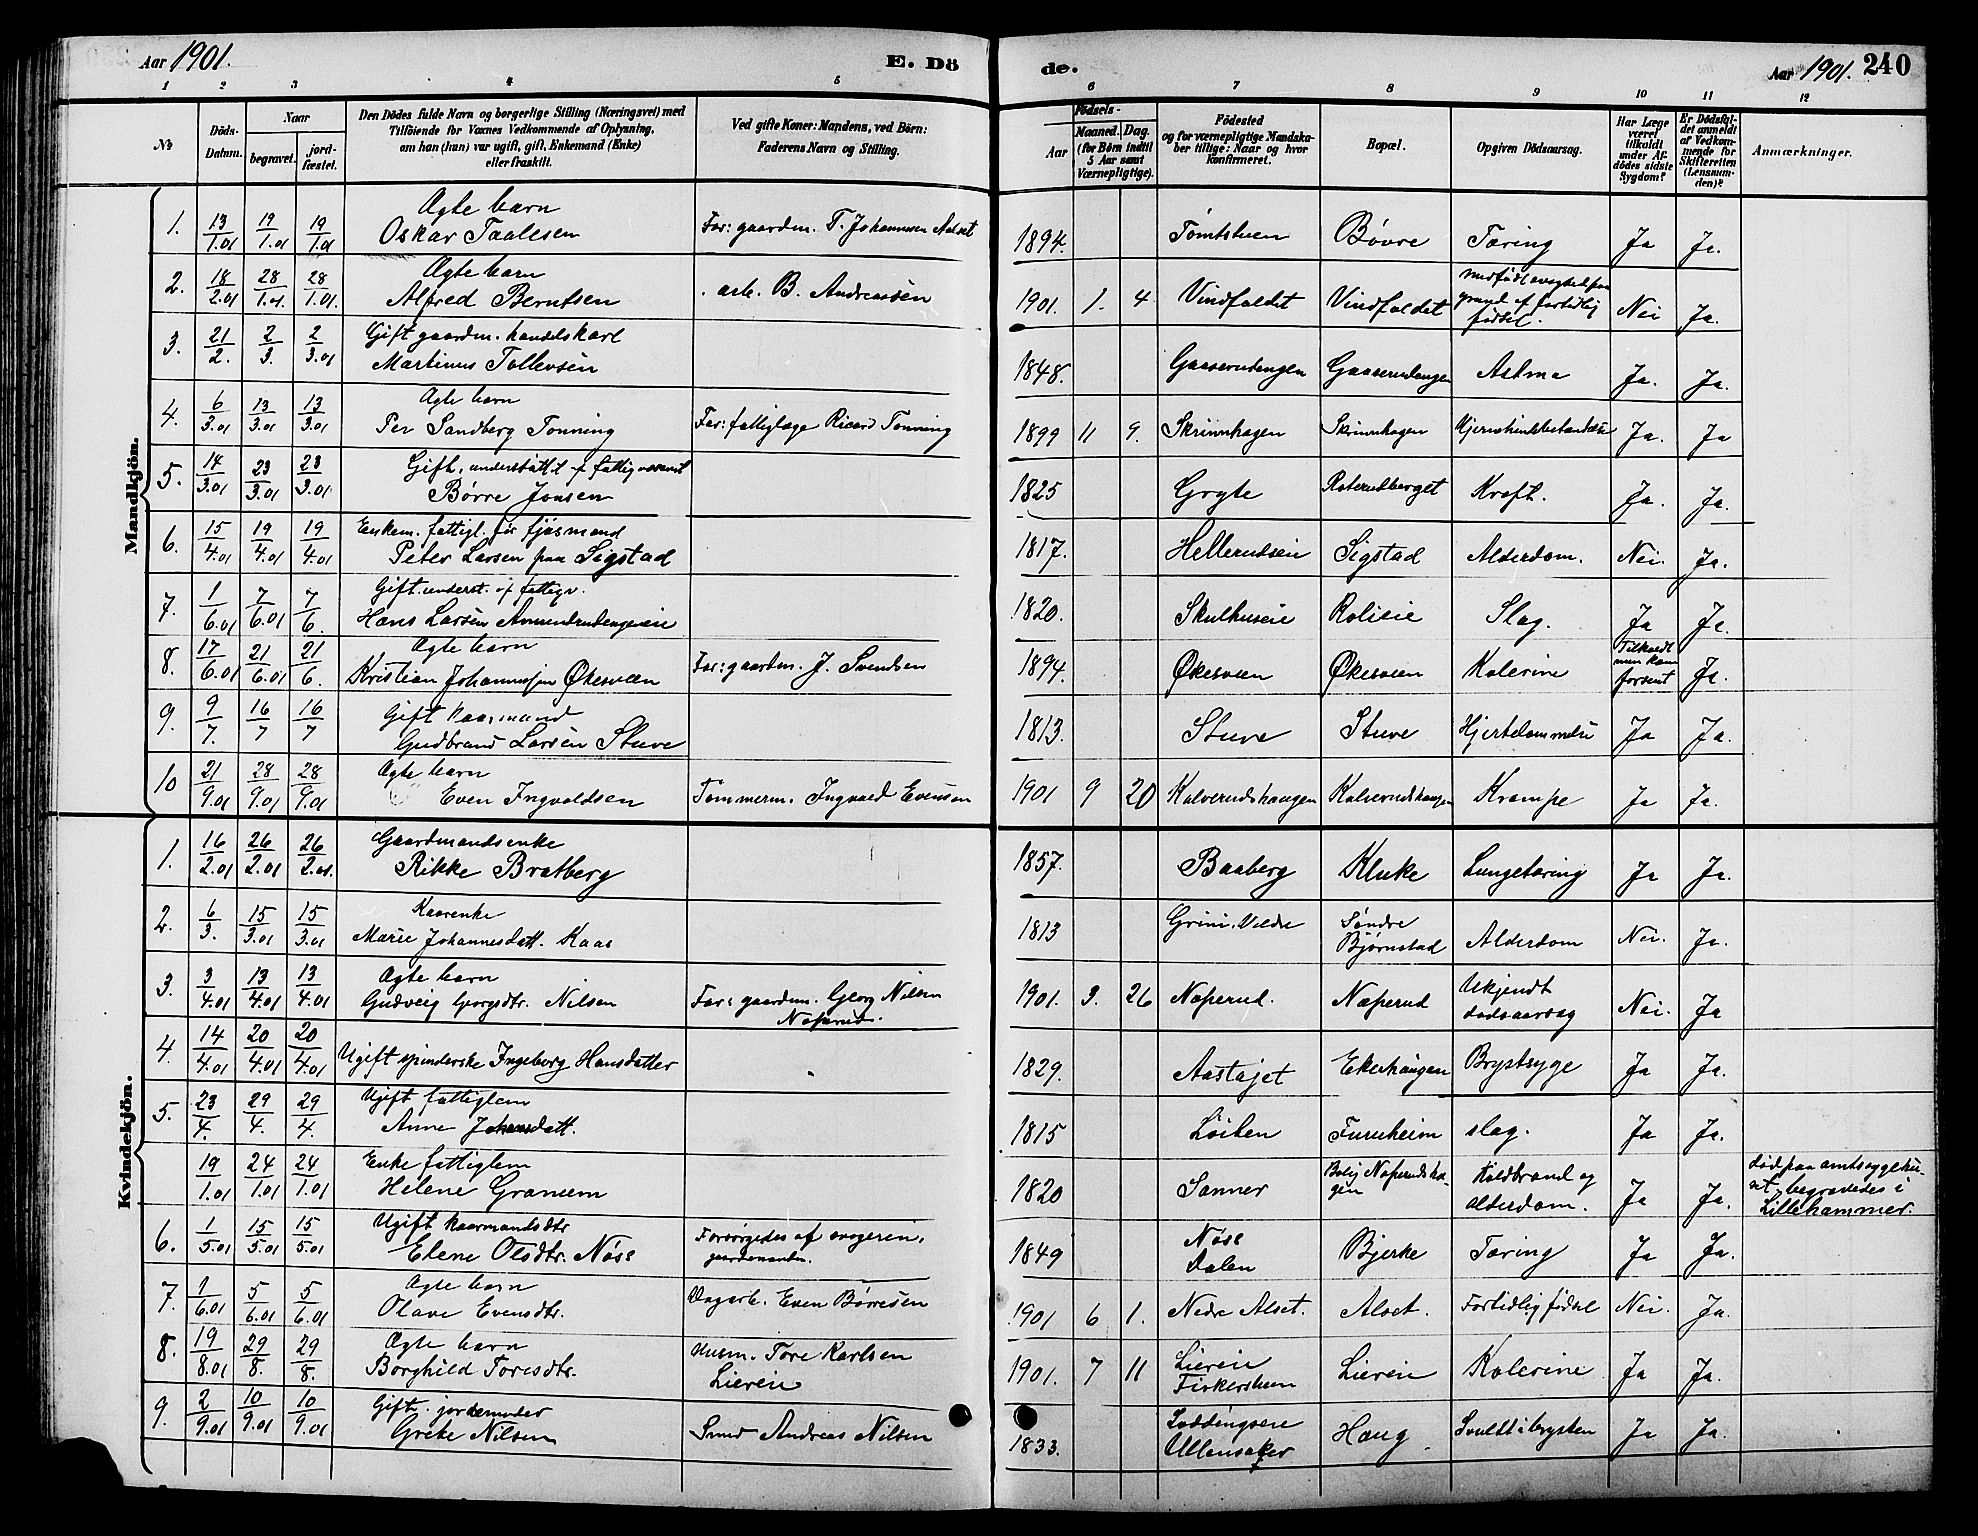 Aar 1901.
E. Dö
de.
Aar 1901. 240
1 2 3 4 5 6 7 8 9 10 11 12
No
Döds-Datum.
Naar
begravet.
jord-fæstet.
Den Dödes fulde Navn og borgerlige Stilling (Næringsvei) med
Tilföiende for Voxnes Vedkommende af Oplysning,
om han (hun) var ugift, gift, Enkemand (Enke)
eller fraskilt.
Ved gifte Koner: Mandens, ved Börn:
Faderens Navn og Stilling.
Födsels-
Aar
Maaned. Dag.
(for Börn indtil
5 Aar samt
Værnepligtige).
Födested
og for værnepligtige Mandska-
ber tillige: Naar og hvor
konfirmeret.
Bopæl.
Opgiven Dödsaarsag.
Har Læge
været
tilkaldt
under Af-
dödes sidste
Sygdom?
Er Dödsfal-
det anmeldt
af Vedkom-
mende for
Skifteretten
(Lensman-
den)?
Anmærkninger.
Mandkjön.
1. 13/1.01 19/1.01 19/1.01 Ægte barn
Oskar Taalesen Far: gaardm. T. Johannesen 1894. Tømtstuen Bøvre Tæring Ja Ja.
2. 18/2.01 28/1.01. 28/1.01. Ægte barn
Alfred Berntsen arb. B. Andreassen 1901. 1. 4 Vindfaldet Vindfaldet medfødt svaghed paa
grund af fortidlig
fødsel. Nei Ja.
3. 21/2. 2/3. 2/3.01 Gift gaardm. handelskarl
Martinus Tollevsen 1848. Gaaserudengen Gaaserudengen Astma Ja. Ja.
4. 6/3.01 13/3.01 13/3.01 Ægte barn
Per Sandberg Tonning Far: fattiglæge Ricard Tonning 1899 11 9. Skrinnhagen Skrinnhagen Ja. Ja
5. 14/3.01 23/3.01 23/3.01 Gift, understøttet f fattigvæsenet
Børre Jonsen 1825 Gryte Roterudberget Kræft. Ja. Ja.
6. 15/4.01 19/4.01 19/4.01 Enkem. fattigl. før
Peter Larsen paa Sigstad 1817. Hellerudseie Sigstad Alderdom. Nei. Ja.
7. 1/6.01 7/6.01 7/6. Gift. underst. af fattigv.
Hans Larsen 1820. Skulhuseie Slag. Ja Ja.
8. 17/6.01 21/6.01 21/6. Ægte barn
Kristian Johannesen Økesveen Far: gaardm. J. Svendsen 1894. Økesveen Økesveen Kolerine Tilkaldt
men kom
forsent Ja.
9. 9/7. 16/7 16/7 Gift kaarmand
Gudbrand Larsen Stuve 1813. Stuve Stuve Hjertelammelse Ja Ja.
10 21/9.01 28/9.01 28/9.01 Ægte barn
Even Ingvaldsen Tømmerm. Ingvald Evensen 1901 9 20 Kalverudshaugen Kalverudshaugen Krampe Ja Ja.
Kvindekjön.
1. 16/2.01 26/2.01 26/2.01. Gaardmandsenke
Rikke Bratberg 1857. Baaberg Kluke Lungetæring Ja Ja.
2. 6/3. 15/3.01 15/3.01 Kaarenke
Marie Johannesdatt. Kaas 1813 Grini. Vildre Søndre
Bjørnstad Alderdom Nei. Ja.
3. 3/4.01 13/4.01 13/4.01 Ægte barn
Gudveig Georgsdtr. Nilsen Far: gaardm. Georg Nilsen
Næperud. 1901. 3. 26 Næperud. Næperud Ukjendt
dødsaarsag Nei. Ja
4. 14/4.01 20/4.01 20/4.01 Ugift spinderske Ingeborg Hansdatter 1829. Aastajet Ekerhaugen Brystsyge Ja Ja.
5. 23/4. 29/4. 29/4. Ugift fattiglem
Anne Johansdatt. 1815 Løiten Furuheim slag. Ja Ja.
19/1.01 24/1.01 24/1.01 Enke fattiglem
Helene Granum 1820 Sanner Bolig Næperudshagen Koldbrand og
alderdom. Ja Ja. død paa amtssygehu-
set, begravedes i
Lillehammer.
6. 1/5.01 15/5.01 15/5.01 Ugift kaarmandsdtr.
Elene Olsdtr. Nøss Forsørgedes af svogeren,
gaardmanden. 1849 Nøss
Dalen Bjerke Tæring Ja Ja.
7. 1/6.01 5/6.01 5/6.01 Ægte barn
Olave Evensdtr. Dagarb. Even Børresen 1901 6 1. Nedre Alset. Alset. Fortidlig fødsel Nei. Ja.
8. 19/8.01 29/8. 29/8. Ægte barn
Borghild Toresdtr. Husm. Tore Karlsen
Liereie 1901. 7 11 Liereie
Liereie Kolerine Ja Ja.
9. 2/9.01 10/9.01 10/9.01 Gift. jordemoder
Grete Nilsen Smed Andreas Nilsen 1833. Ullensaker Haug Svulst i brysten Ja Ja.